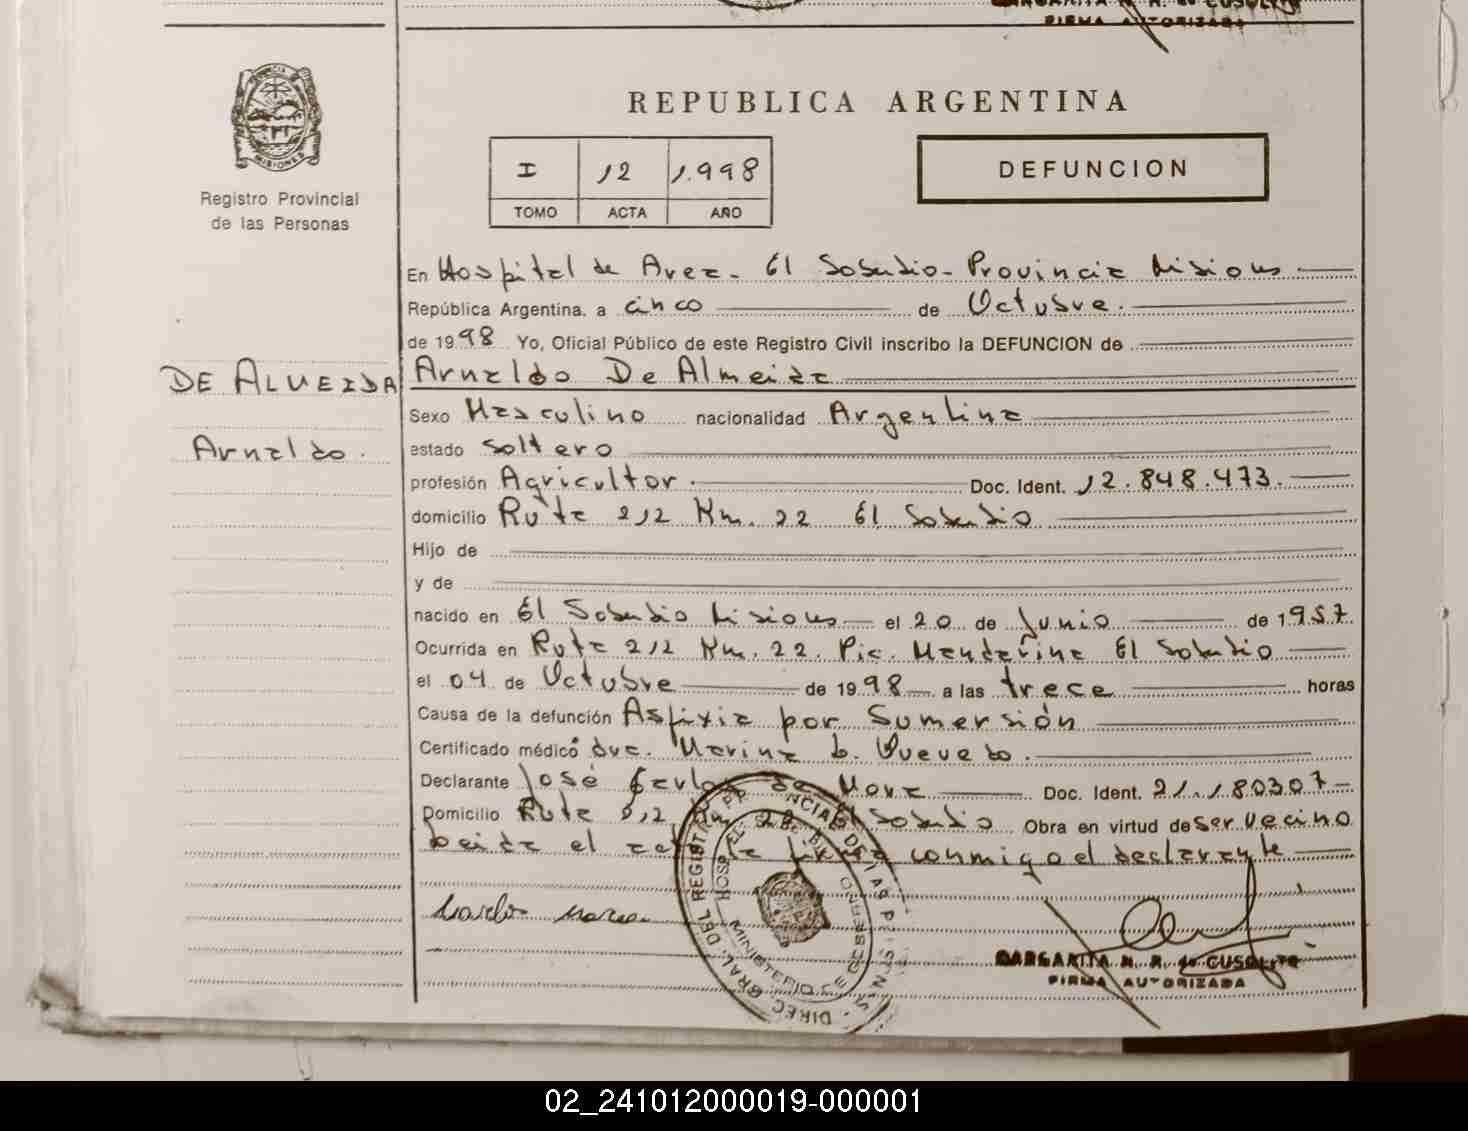 FIRMA AUTORIZADA
REPUBLICA ARGENTINA
I 12 1.998
TOMO ACTA AÑO
DEFUNCION
MISIONES
Registro Provincial
de las Personas
En Hospital de Area - El Soberbio - Provincia Misiones
República Argentina, a cinco de Octubre.
de 1998 Yo, Oficial Público de este Registro Civil inscribo la DEFUNCION de
DE ALMEIDA
Arnaldo De Almeida
Sexo Masculino nacionalidad Argentina
Arnaldo.
estado Soltero
profesión Agricultor. Doc. Ident. 12.848.473.
domicilio Ruta 212 Km. 22 El Soberbio
Hijo de
y de
nacido en El Soberbio Misiones el 20 de Junio de 1957.
Ocurrida en Ruta 212 Km. 22. Pic. Mandarina El Soberbio
el 04 de Octubre de 1998 a las trece horas
Causa de la defunción Asfixia por Sumersión
Certificado médico dra. Marina
Declarante José Carlos de Mora Doc. Ident. 21.180307
Domicilio Ruta 212 Km 22 El Soberbio Obra en virtud de ser vecino
Leida el acta la firma conmigo el declarante
MARGARITA N. R. de CUSOLITO
FIRMA AUTORIZADA
02_241012000019-000001